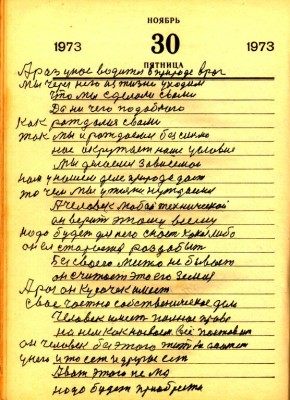 НОЯБРЬ
1973 30 1973
ПЯТНИЦА
А раз у нас водится в природе враг
Мы через него из жизни уходим
Что мы сделали своим
Да ни чего подобного
Как рождался своим
так мы и рождаемся
нас окружает наше условие
Мы делаемся зависимо
нам у нашем деле природа даст
то чем мы у жизни нуждаемся
А человек любой технической
он верит этому всему
надо будет для него своих какова либо
он ел старается раздобыть
Без своего место не бывает
он считает это его Земля
А раз он кусочек имеет
Свое частно собственническое дело
Человек имеет полное право
на нем как называем все поставить
он человек без этого жить не сможет
у него и то есть и другое есть
А вот этого не
надо будет приобрести